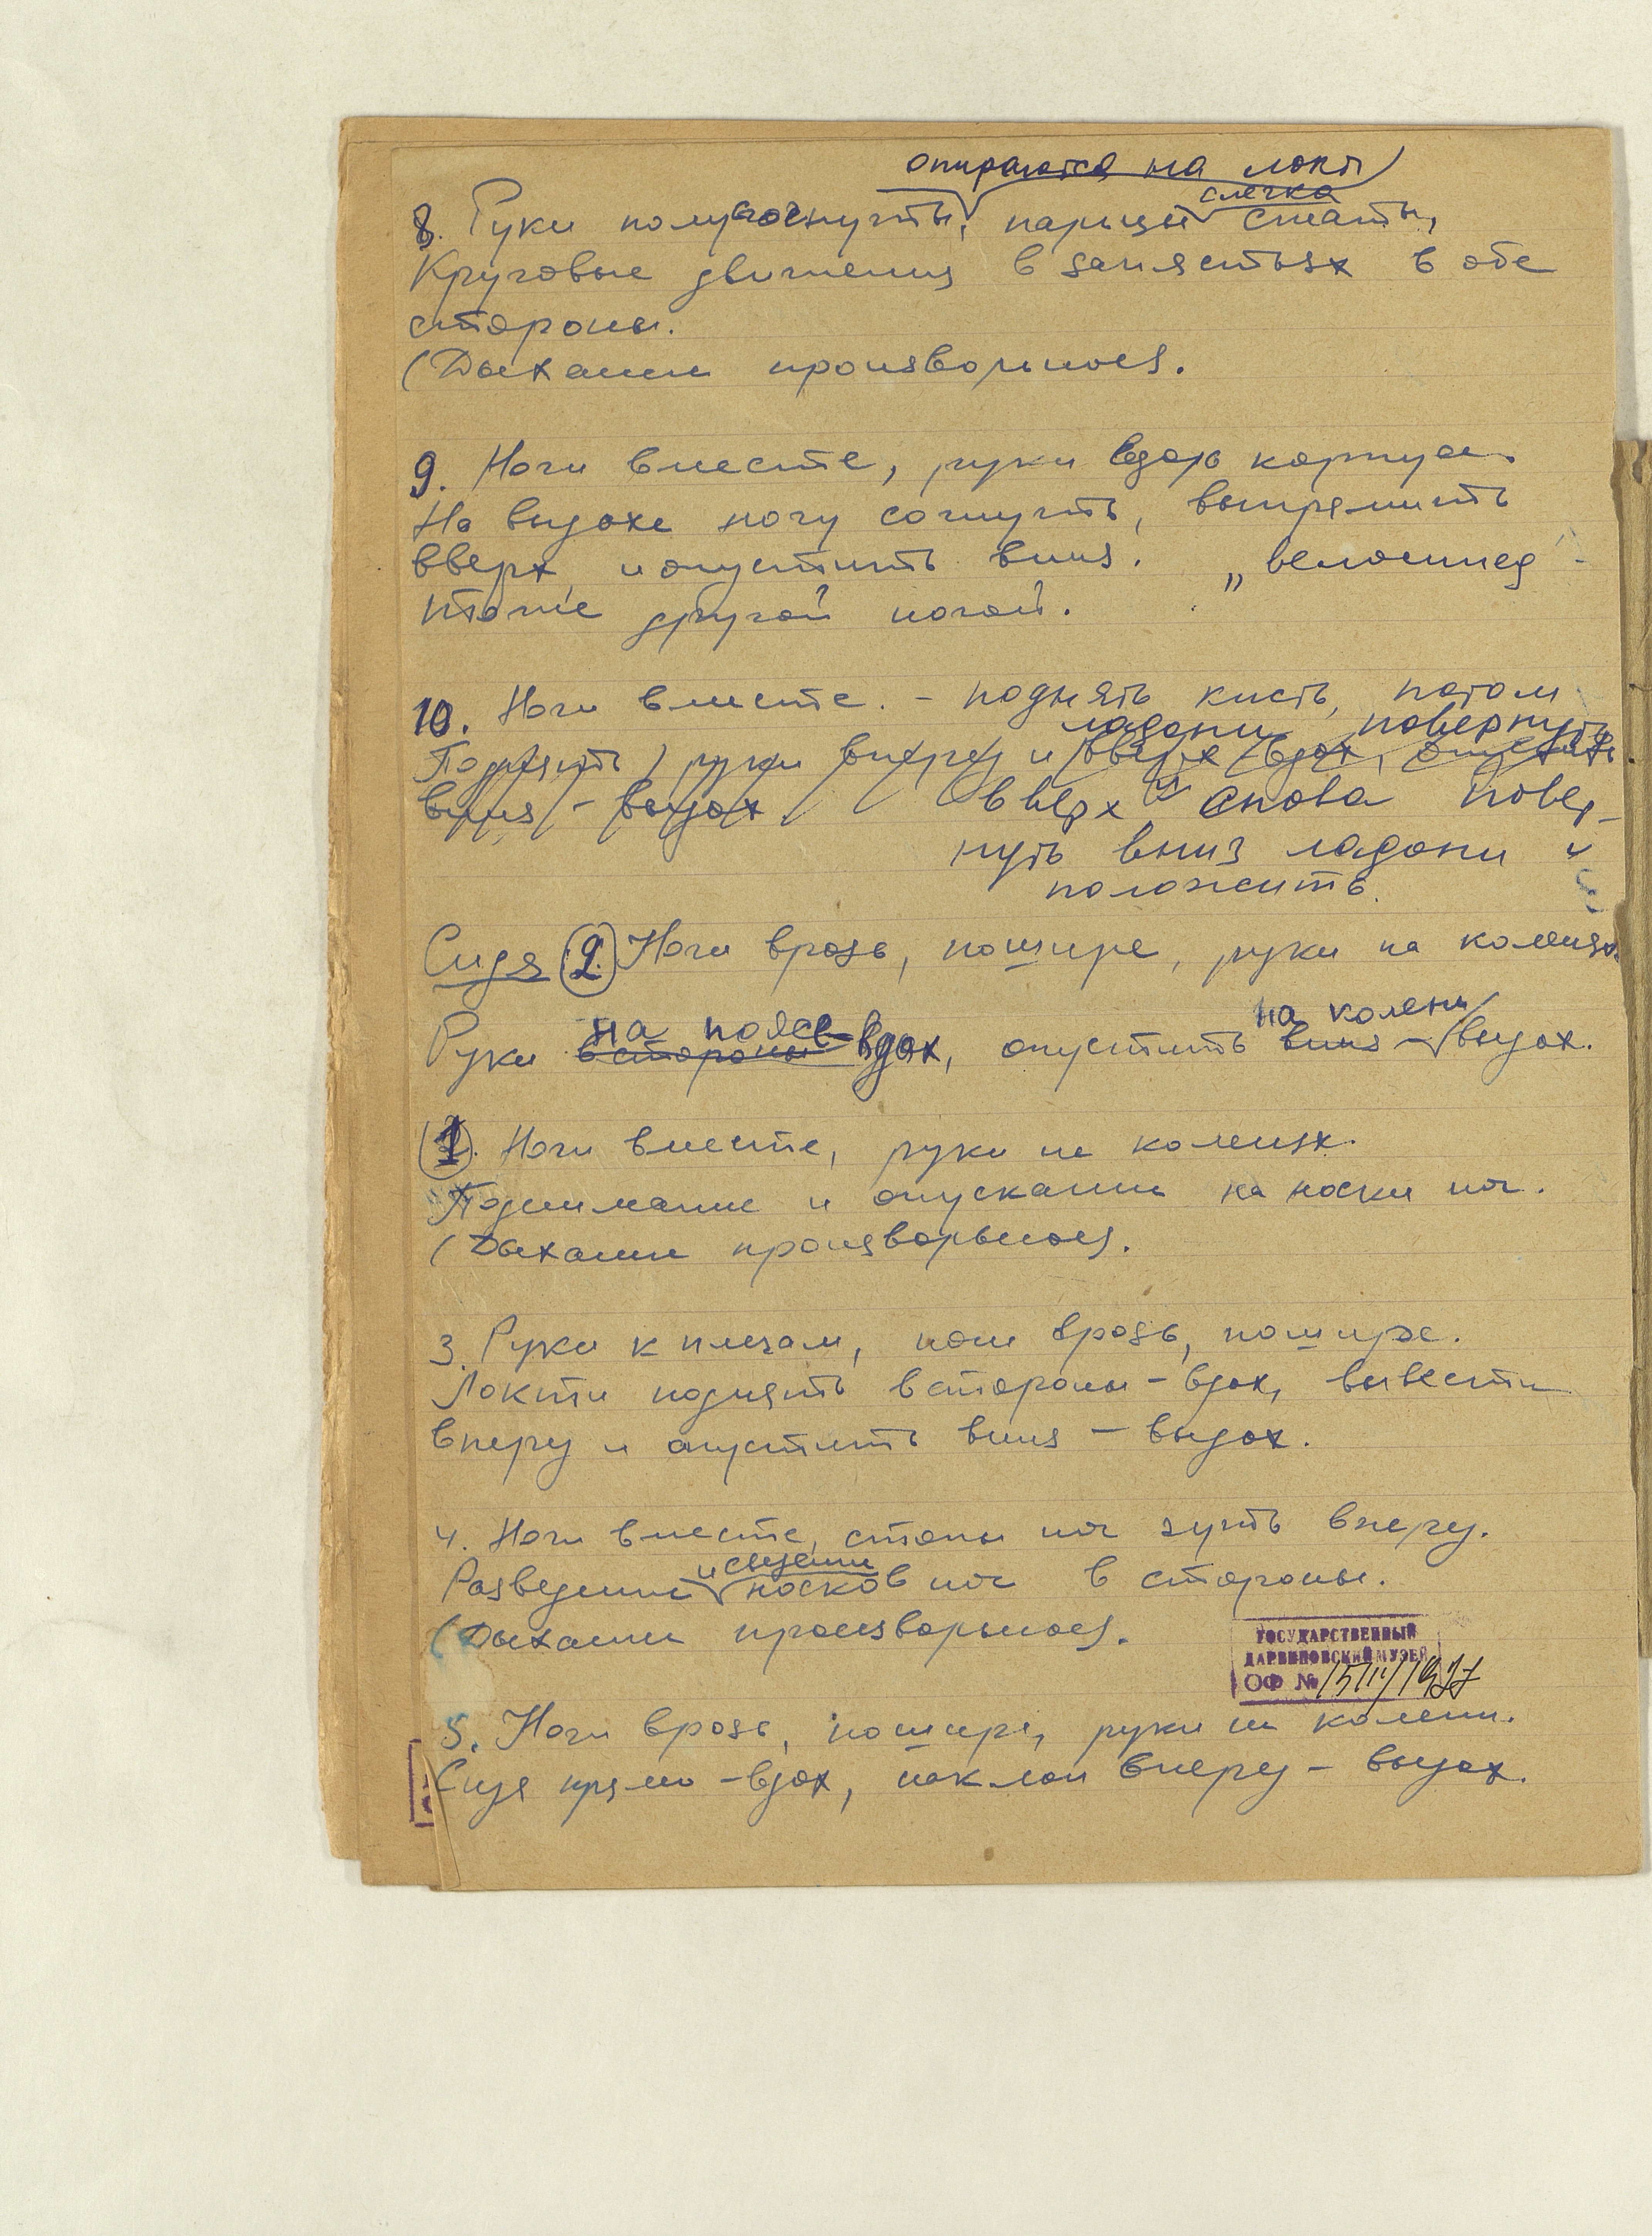 опираются на локт
слегка
8. Руки полусогнуты, пальцы сжаты,
Круговые движения в запястьях в обе
стороны.
(Дыхание произвольное).
9. Ноги вместе, руки вдоль корпуса.
На выдохе ногу согнуть, выпрямить
вверх и опустить вниз. „велосипед
То же другой ногой.
10. Ноги вместе. - поднять кисть, потом
ладони повернуть
Поднять руки вперед и вверх вдох, опустить
вниз - выдох вверх и снова повер-
нуть вниз ладони и
положить.
Сидя 2. Ноги врозь, пошире, руки на коленях.
на поясе на колени
Руки в стороны - вдох, опустить вниз - выдох.
1. Ноги вместе, руки на коленях.
Поднимание и опускание на носки ног.
(Дыхание произвольное).
3. Руки к плечам, ноги врозь, пошире.
Локти поднять в стороны - вдох, вывести
вперед и опустить вниз - выдох.
4. Ноги вместе, стопы ног чуть вперед.
и сведение
Разведение носков ног в стороны.
(Дыхание произвольное).
ГОСУДАРСТВЕННЫЙ
ДАРВИНОВСКИЙ МУЗЕЙ
ОФ №
5. Ноги врозь, пошире, руки на колени.
Сидя прямо - вдох, наклон вперед - выдох.